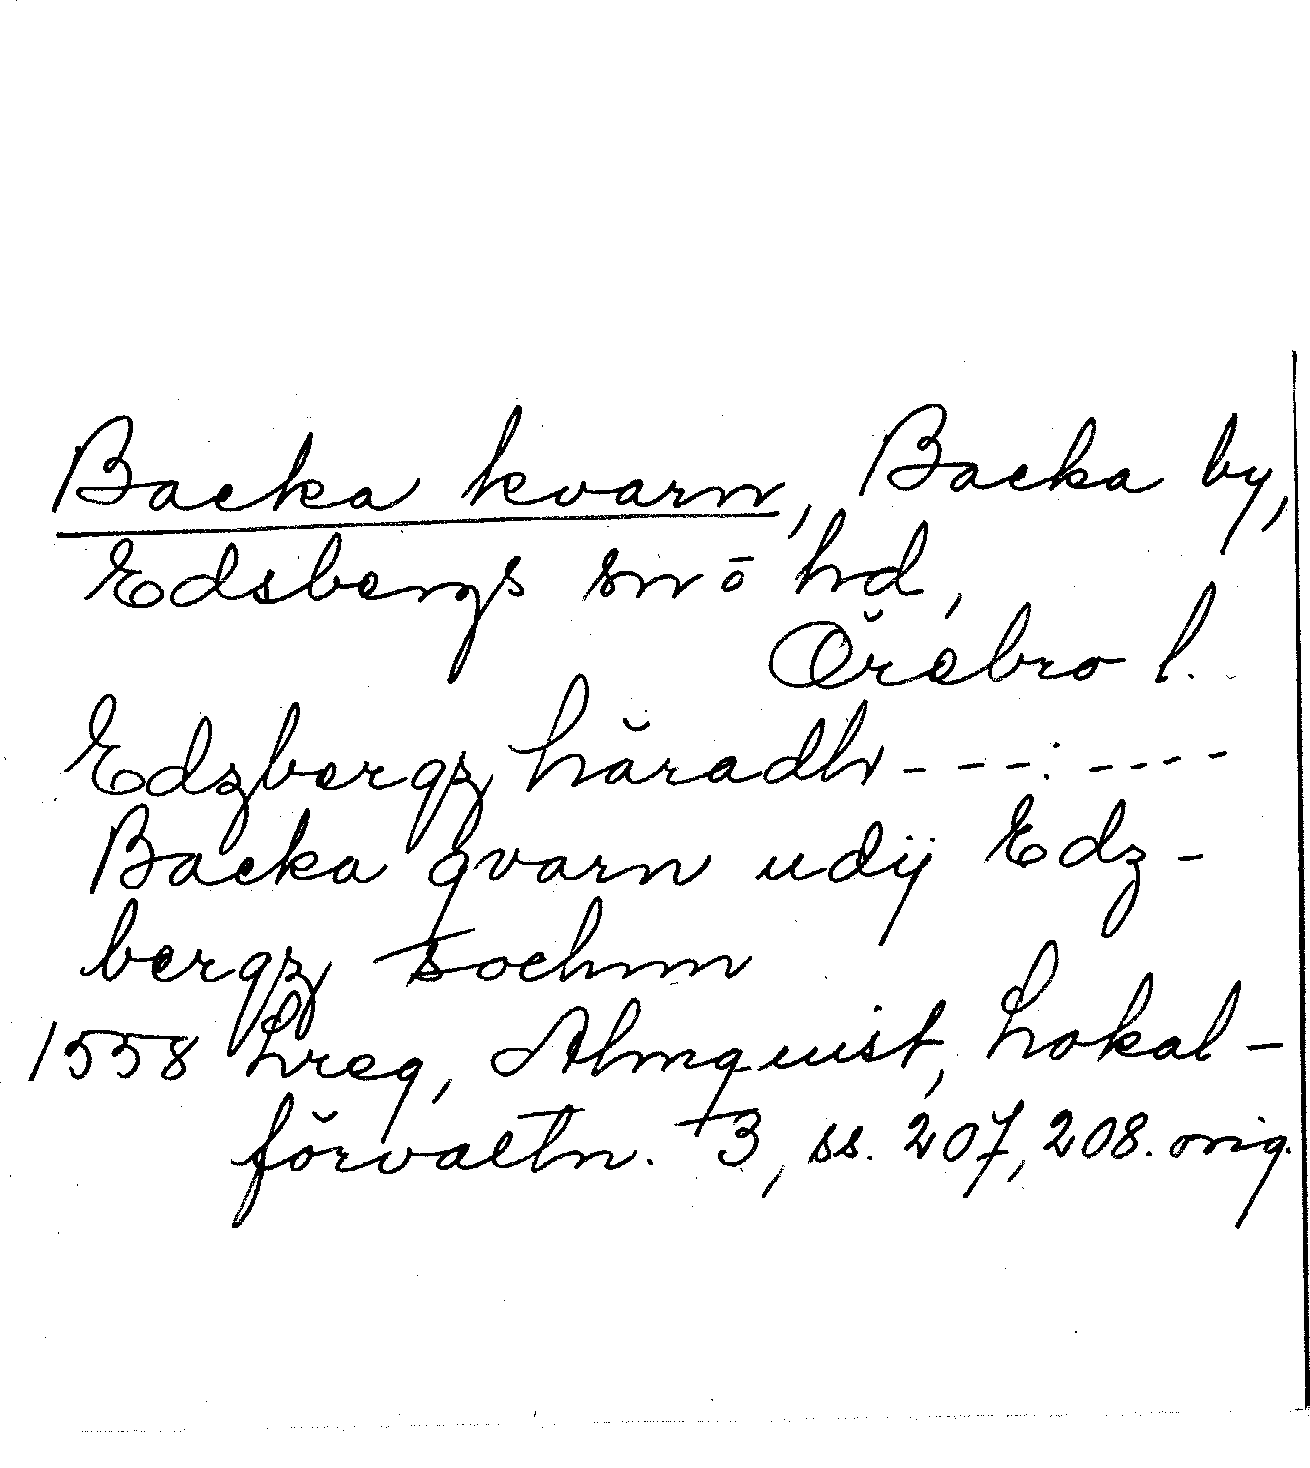 Backa kvarn, Backa by,
Edsbergs sn o hd,
Örebro l.
Edzbergz häradh - - - . - - - -
Backa qvarn udij Edz-
bergz sochnn
1558 Lreg, Almquist, Lokal-
förvaltn. 3, ss. 207, 208. orig.